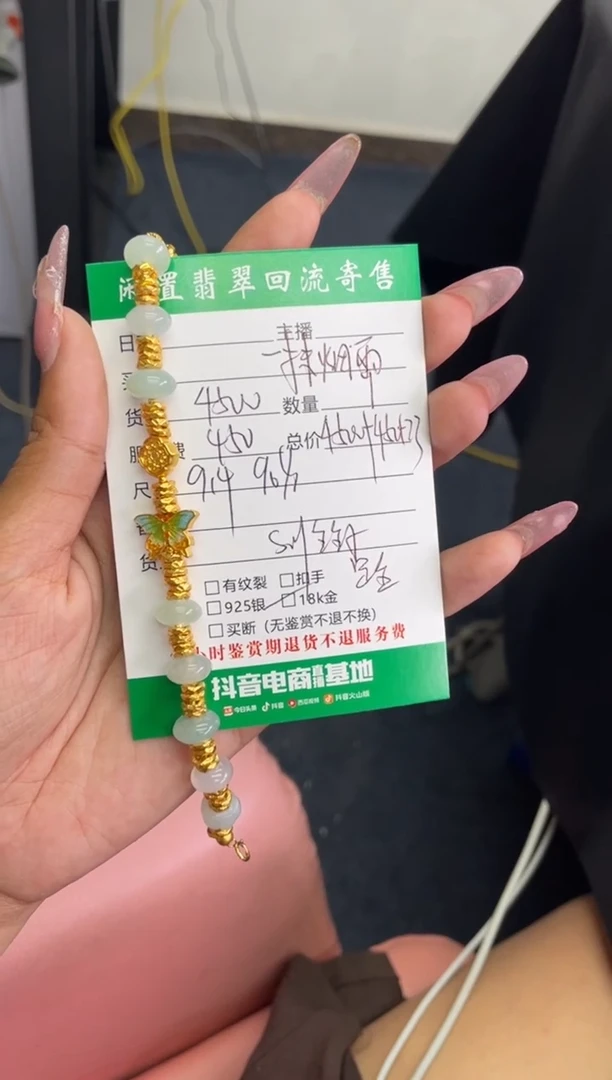 闲置翡翠回流寄售
日 主播
一抹烟雨
货 4500 数量
服 费 450 总价4500+450+23
尺
货
□有纹裂 □扣手
□925银 □18k金
□买断（无鉴赏不退不换）
小时鉴赏期退货不退服务费
抖音电商直播基地
今日头条 抖音 西瓜视频 抖音火山版